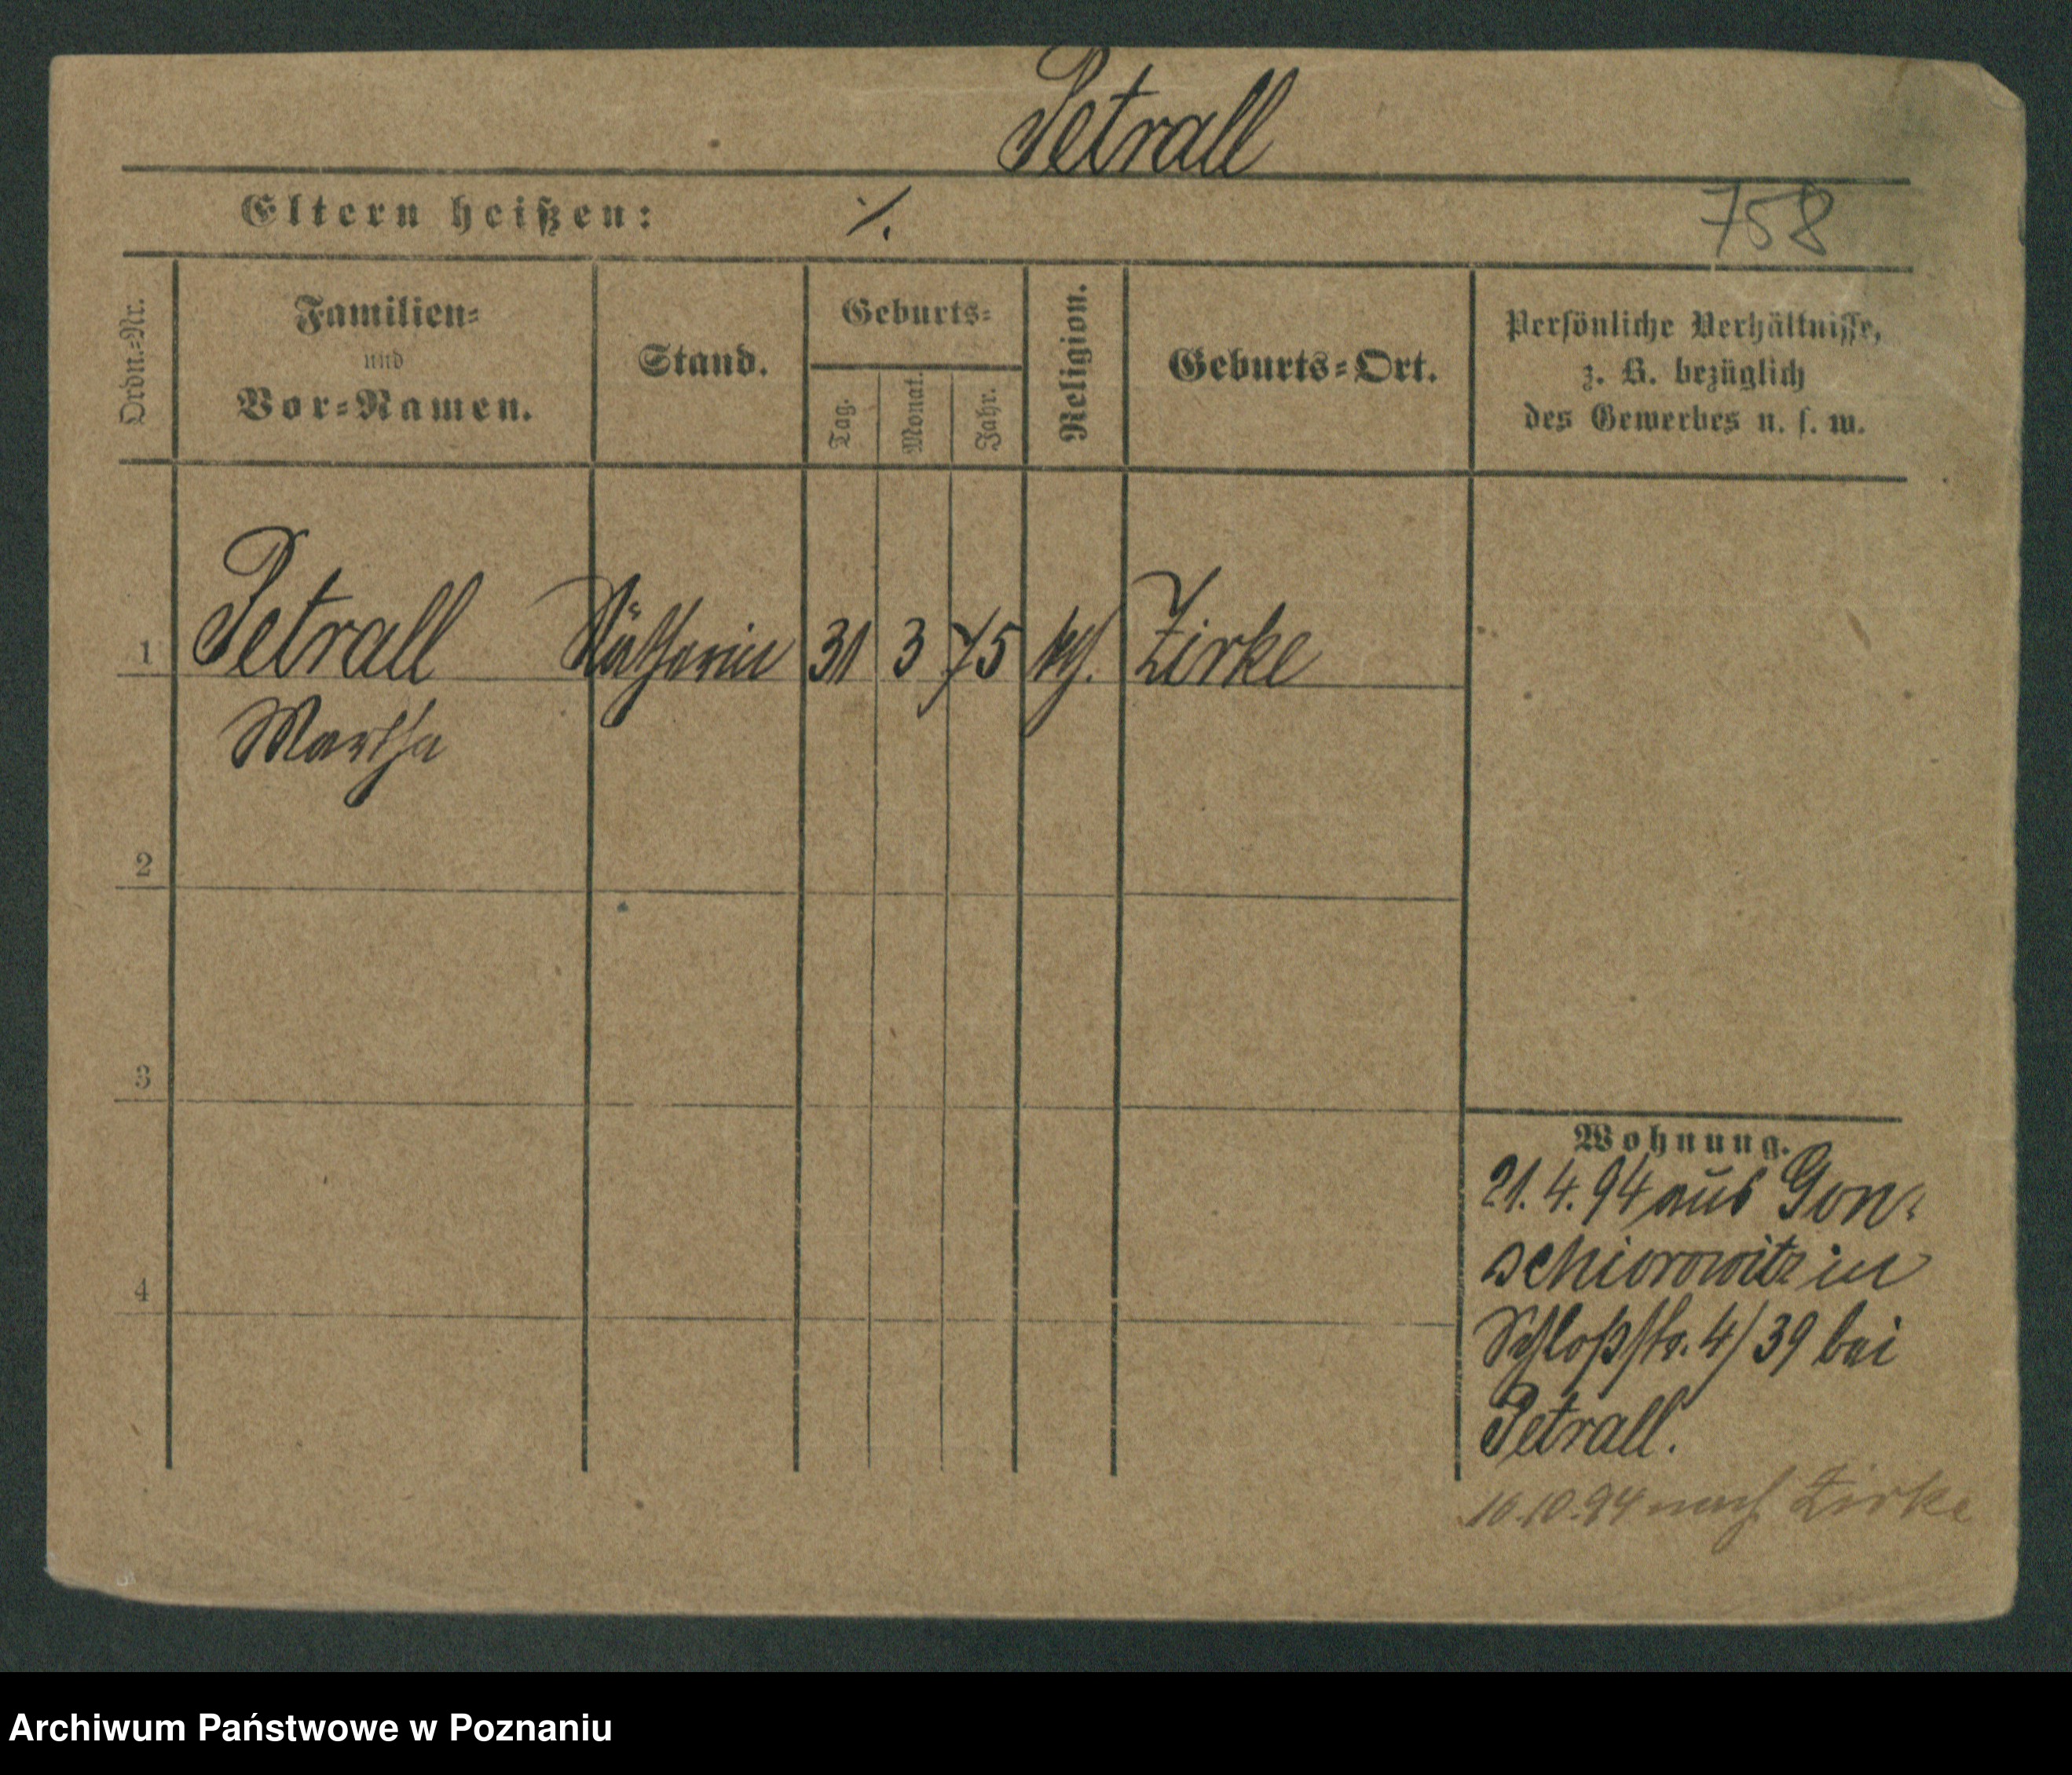 Petrall
Eltern heißen: ⁒
758
Ordn.-Nr.
Familien-
und
Vor-Namen.
Stand.
Geburts-
Tag.
Monat.
Jahr.
Religion.
Geburts-Ort.
Persönliche Verhältnisse,
z. B. bezüglich
des Gewerbes u. s. w.
1 Petrall Nätherin 31 3 75 kth. Zirke
Martha
2
3
4
Wohnung.
21.4.94 aus Gon-
schiorowitz in
Schloßstr. 4/39 bei
Petrall.
10.10.94 nach Zirke
Archiwum Państwowe w Poznaniu